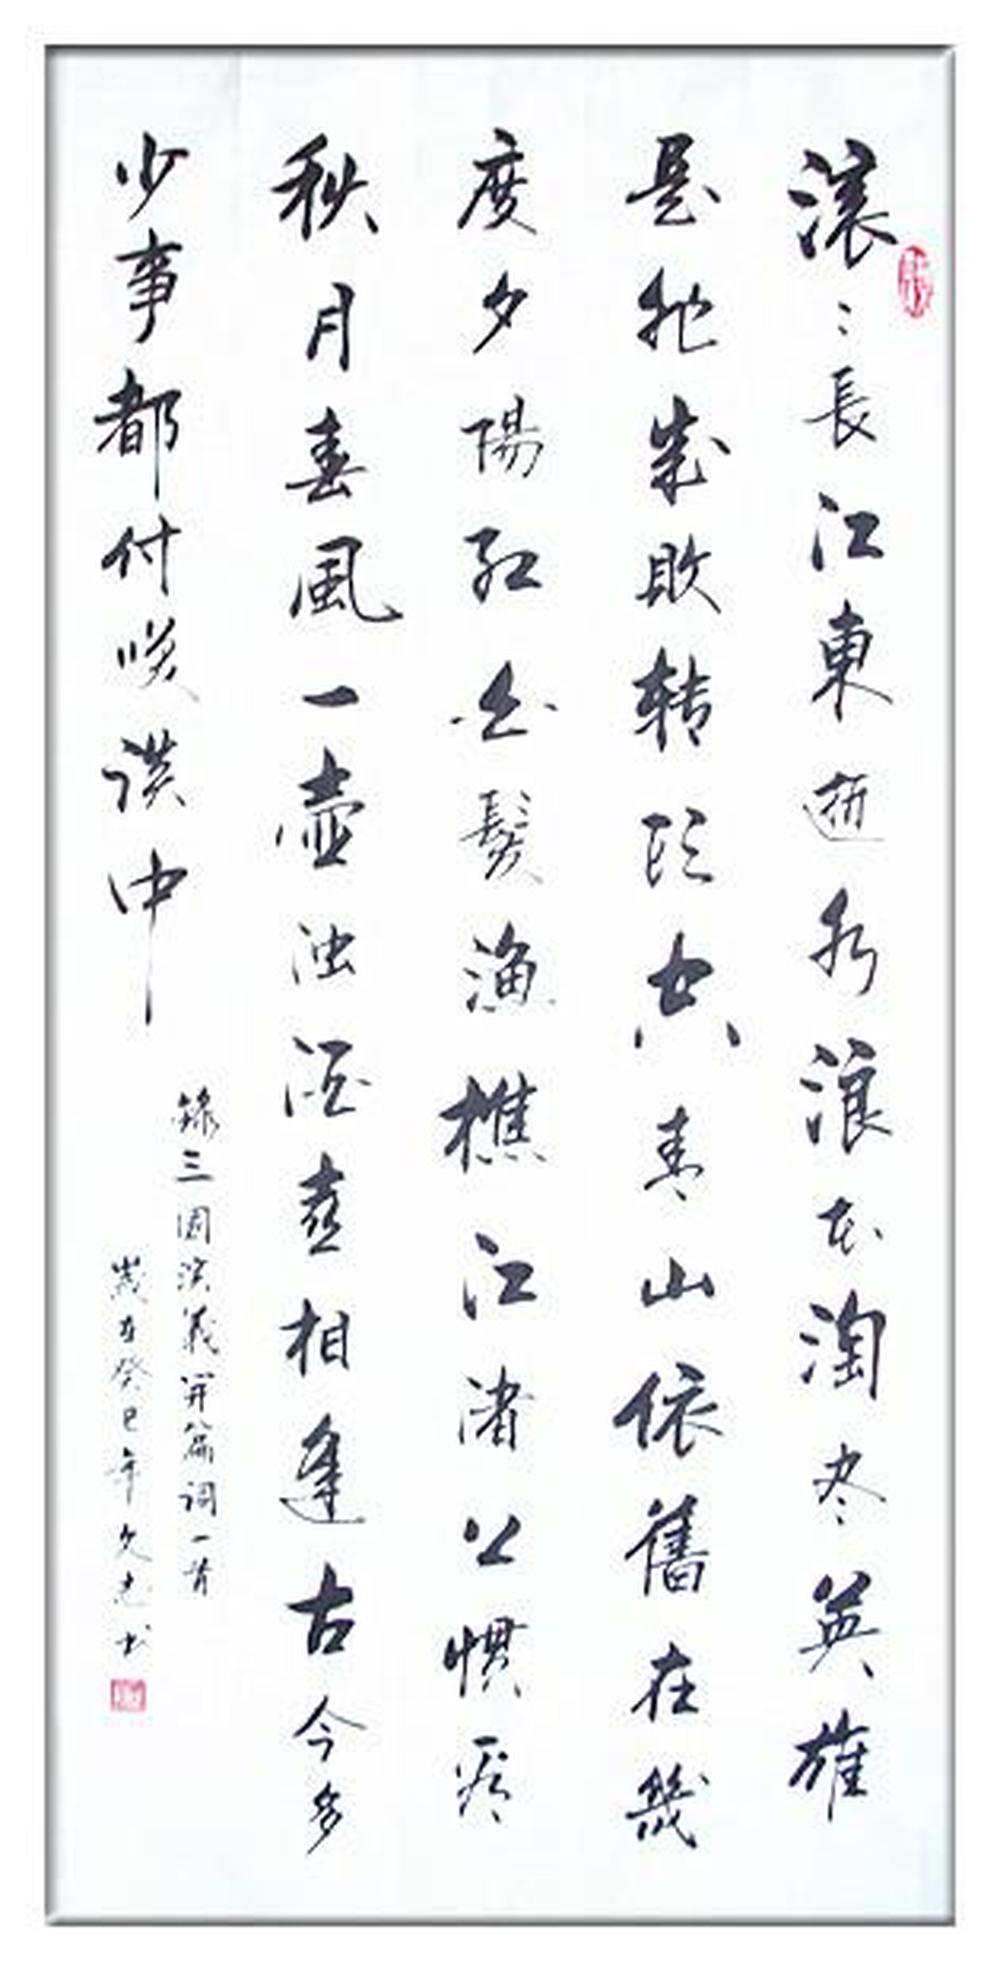 滚々長江東逝水浪花淘尽英雄
是非成敗转頭空青山依舊在幾
度夕陽红白髮漁樵江渚上惯看
秋月春風一壶浊酒喜相逢古今多
少事都付咲谈中
録三國演義开篇词一首
歲在癸巳年文志书